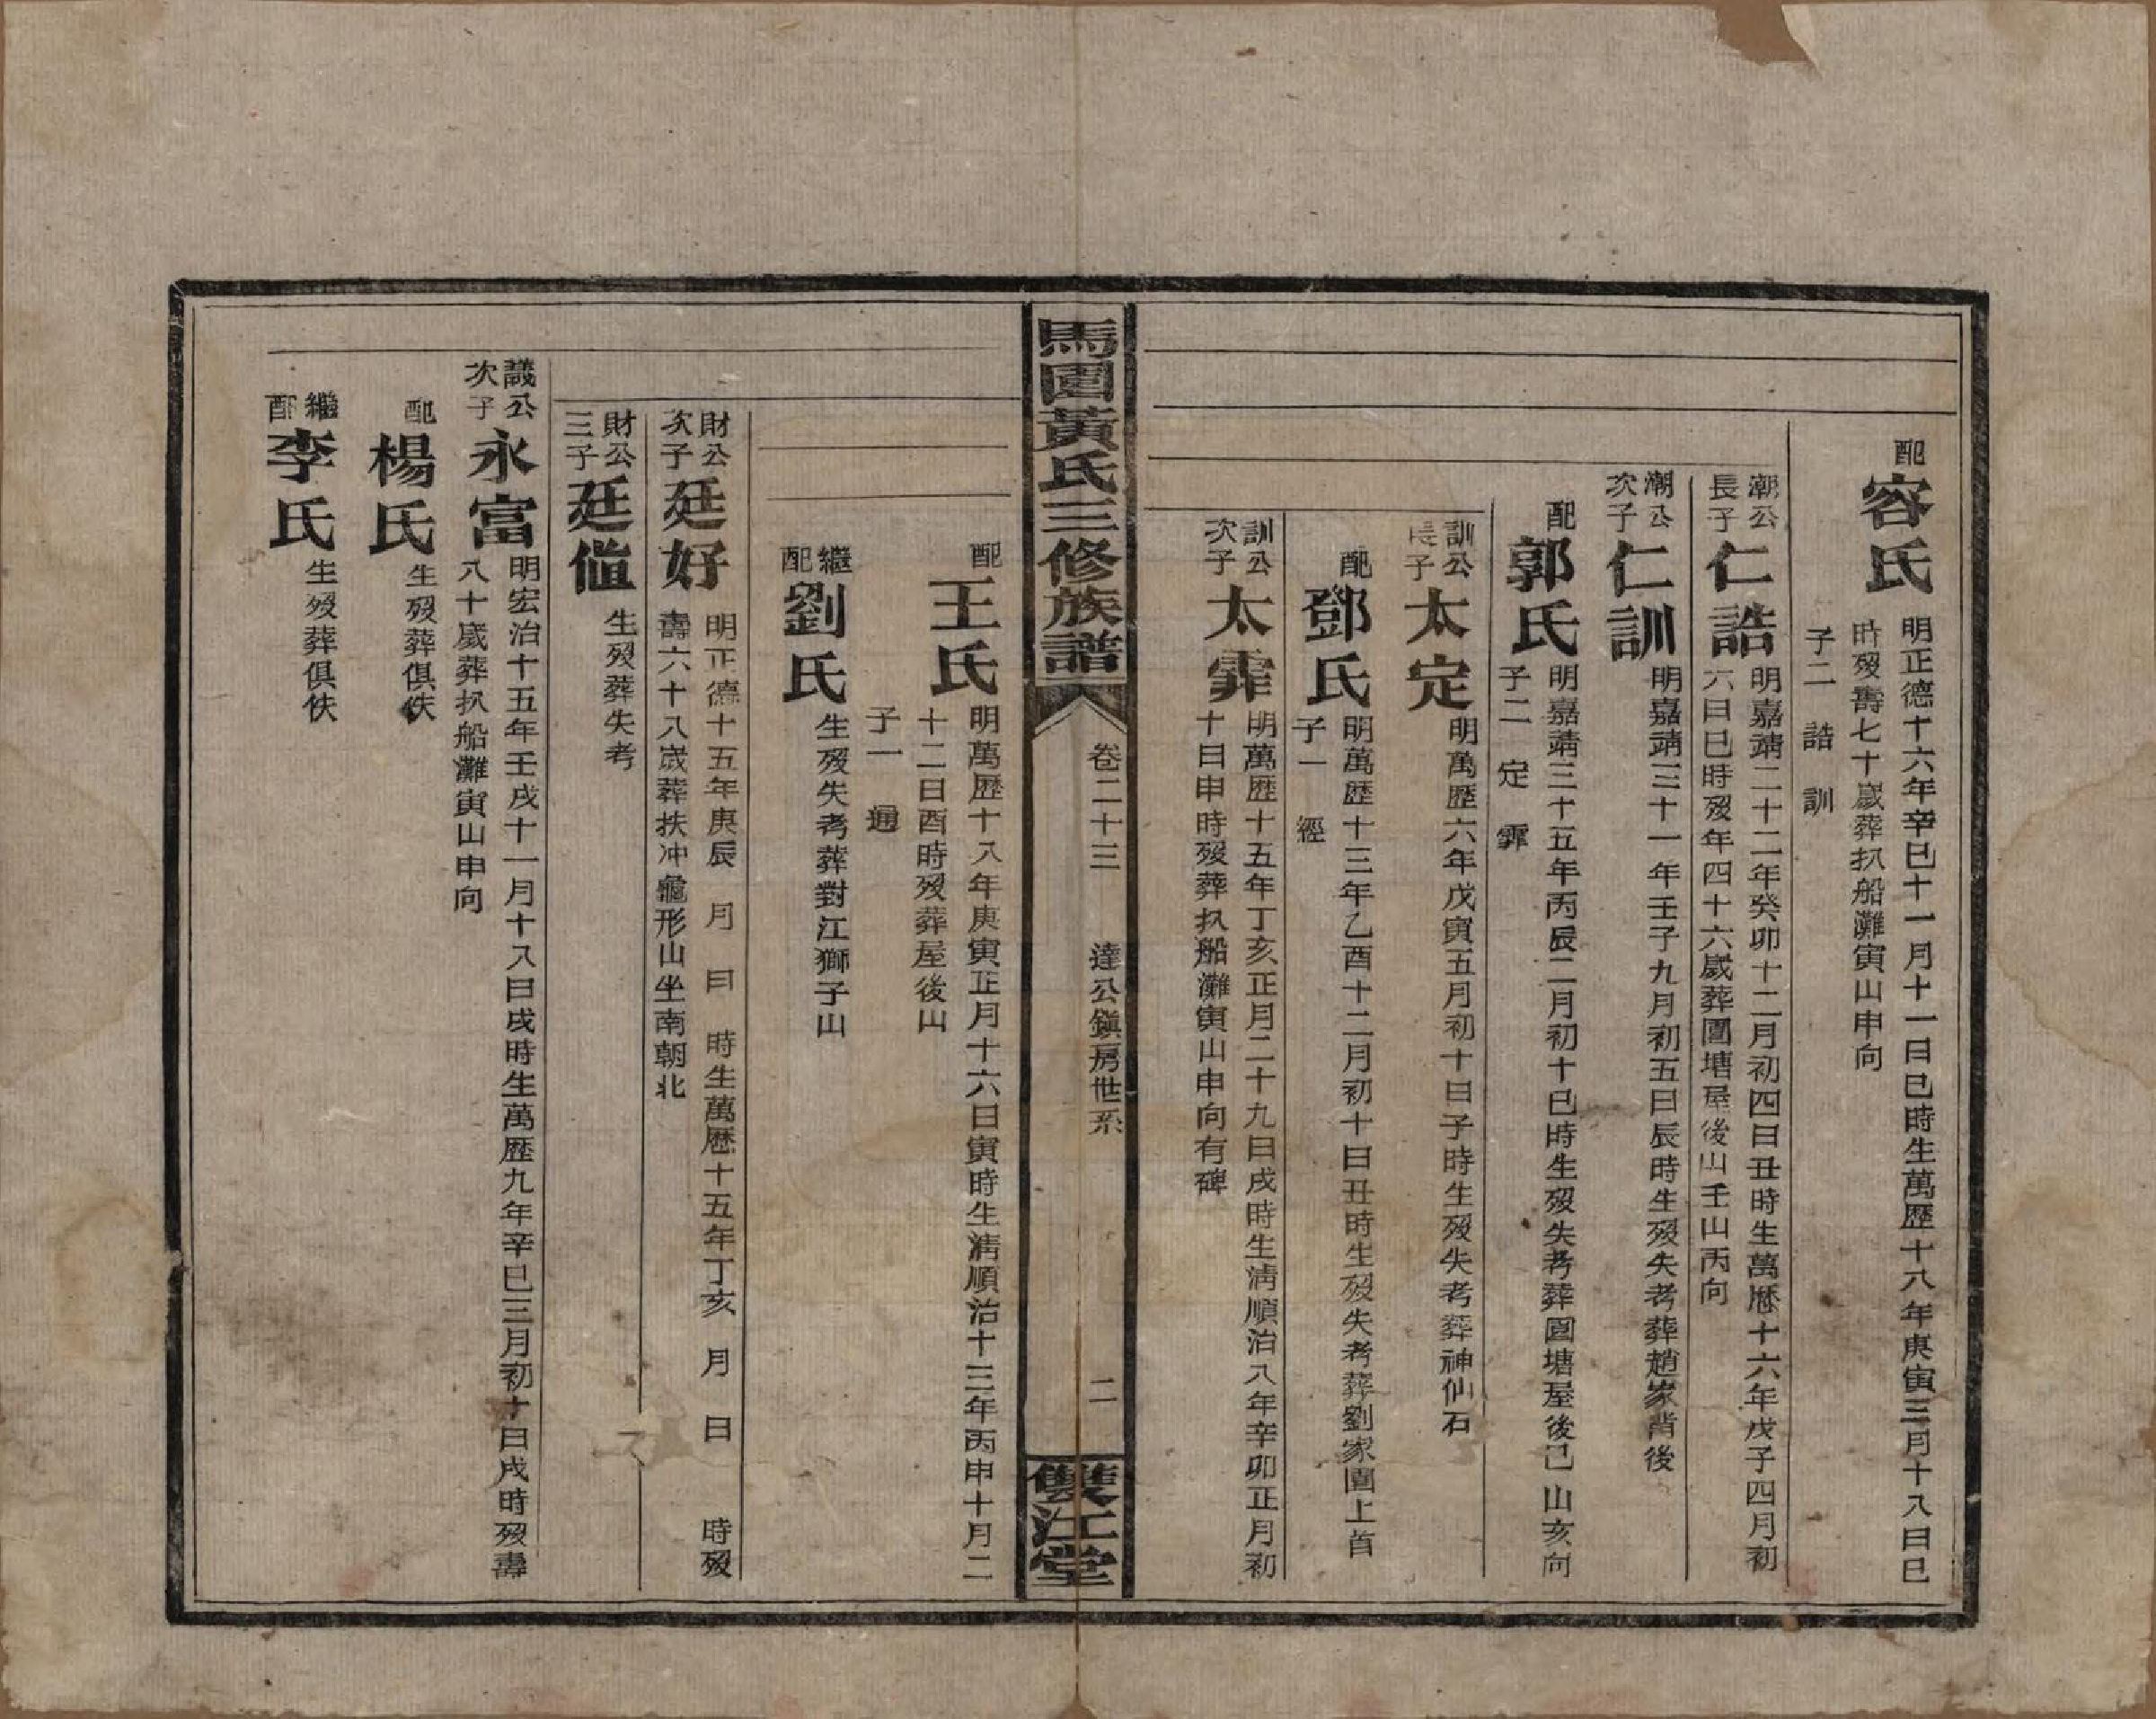 配容氏
明正德十六年辛巳十一月十一日巳時生萬歴十八年庚寅三月十八日巳
時歿壽七十歲葬扒船灘寅山申向
子二 誥 訓
潮公長子仁誥
明嘉靖二十二年癸卯十二月初四日丑時生萬歴十六年戊子四月初
六日巳時歿年四十六歲葬圍塘屋後山壬山丙向
潮公次子仁訓
明嘉靖三十一年壬子九月初五日辰時生歿失考葬趙家背後
配郭氏
明嘉靖三十五年丙辰二月初十巳時生歿失考葬圓塘屋後己山亥向
子二 定 霏
訓公長子太定
明萬歴六年戊寅五月初十日子時生歿失考葬神仙石
配鄧氏
明萬歴十三年乙酉十二月初十日丑時生歿失考葬劉家園上首
子一 經
訓公次子太霏
明萬歴十五年丁亥正月二十九日戌時生清順治八年辛卯正月初
十日申時歿葬扒船灘寅山申向有碑
馬園黃氏三修族譜
卷二十三 達公鎮房世系 二
雙江堂
配王氏
明萬歴十八年庚寅正月十六日寅時生清順治十三年丙申十月二
十二日酉時歿葬屋後山
子一 通
繼配劉氏
生歿失考葬對江獅子山
財公次子廷好
明正德十五年庚辰 月 日 時生萬歴十五年丁亥 月 日 時歿
壽六十八歲葬扶冲龜形山坐南朝北
財公三子廷
生歿葬失考
議公次子永富
明宏治十五年壬戌十一月十八日戌時生萬歴九年辛巳三月初十日戌時歿壽
八十歲葬扒船灘寅山申向
配楊氏
生歿葬俱佚
繼配李氏
生歿葬俱佚